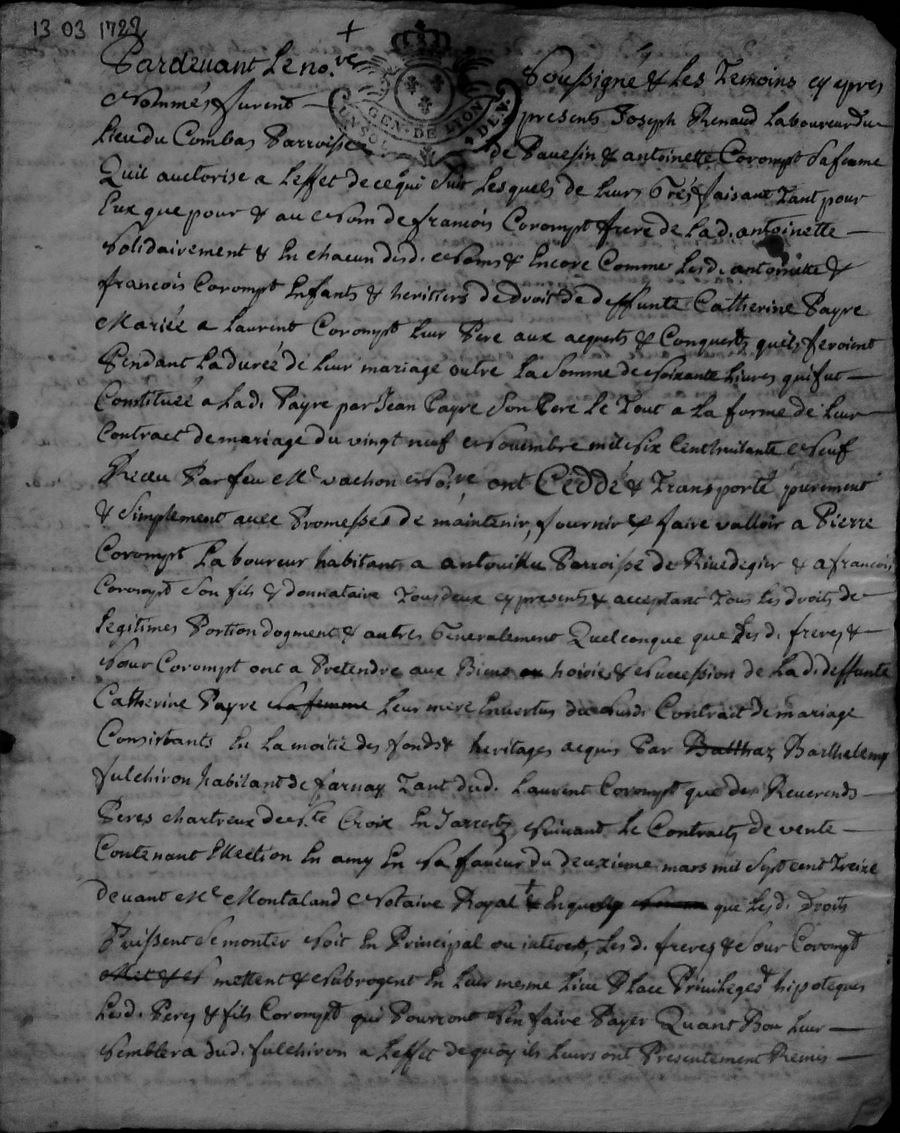 13 03 1722
Pardevant Le no.re soussigné & Les Temoins cy apres
Nommés furent presents Joseph Renaud Laboureur du
GEN. DE LION
Lieu du Combas Parroisse de Pavesin & antoinette Corompt sa femme
Quil auctorise a Leffet de ce qui suit Lesquels de Leurs Grés faisant Tant pour
Eux que pour & au Nom de francois Corompt frere de Lad. antoinette
Solidairement & En chacun desd. Noms & Encore Comme Lesd. antoinette &
francois Corompt Enfants & heritiers de droit de deffunte Catherine Payre
Mariée a Laurent Corompt Leur Pere aux acquets & Conquerts quils feroient
Pendant La durée de Leur mariage outre La somme de soixante Livres qui fut
Constituée a Lad. Payre par Jean Payre son Pere Le Tout a La forme de Leur
Contract de mariage du vingt neuf Novembre mil six Cent huitante Neuf
Receu Par feu Me vachon No.re ont Ceddé & Transporté purement
& Simplement avec Promesses de maintenir, fournir & faire valloir a Pierre
Corompt Laboureur habitant a antouillu Parroisse de Rivedegier & a francois
Corompt son fils & donnataire Tous deux cy presents & acceptant Tous Les droits de
Legitimes Portion dogment & autres Generalement Quelconque que Lesd. freres &
Sour Corompt ont a Pretendre aux Biens ou hoirie & succession de Lad. deffunte
Catherine Payre sa femme Leur mere En vertus dud. Contrait de mariage
Consistants En La moitié des fonds & heritages acquis Par Balthaz Barthelemy
fulchiron habitant de farnay Tant dud. Laurent Corompt que des Reverends
Peres chartreux de s.te Croix En Jarrest suivant Le Contract de vente
Contenant Ellection En amy En sa faveur du deuxieme mars mil sept cent Treize
devant Me Montaland Notaire Royal & que Lesd. Droits
Puissent se monter soit En Principal ou interest, Lesd. freres & sour Corompt
mettent & subrogent En Leur mesme Lieu Place Privileges & hipoteques
Lesd. Peres & fils Corompt qui Pourront sen faire Payer Quant Bon Leur
Semblera dud. fulchiron a Leffet de quoy ils Leurs ont Presentement Remis